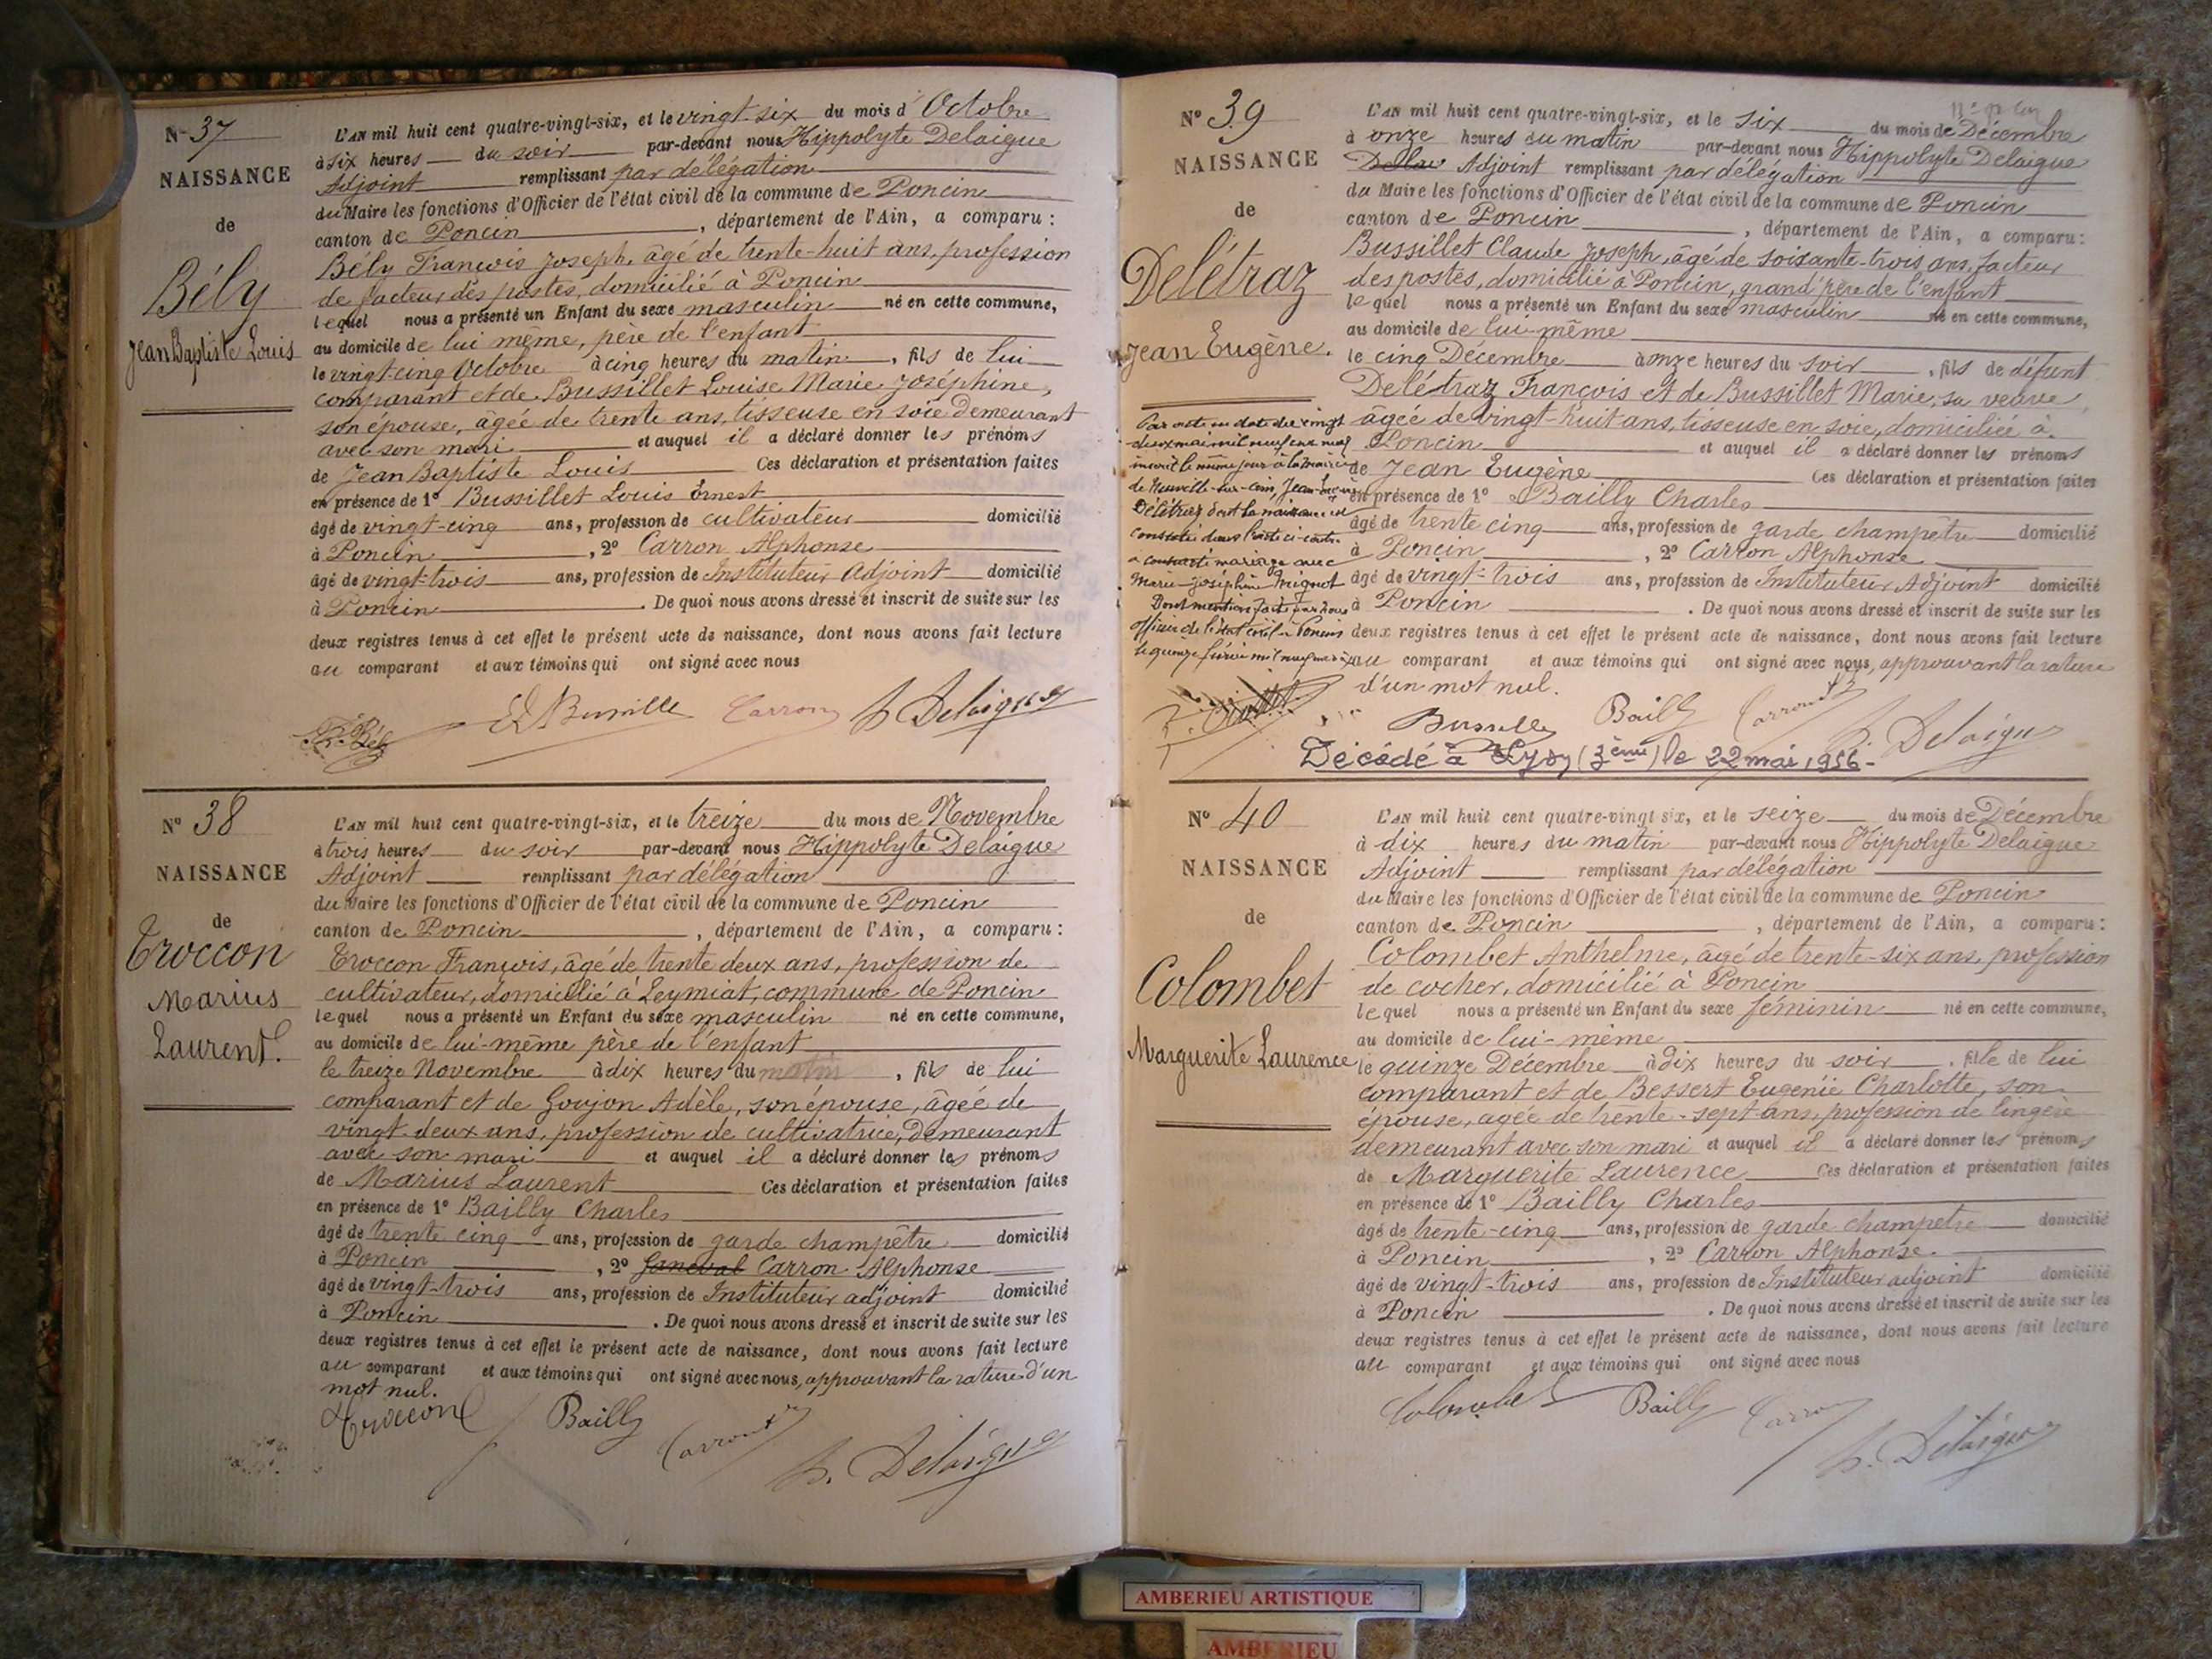 N° 37
NAISSANCE
de
Bély
Jean Baptiste Louis
L'AN mil huit cent quatre-vingt-six, et le vingt-six du mois d'Octobre
à six heures du soir par-devant nous Hippolyte Delaigue
Adjoint remplissant par délégation
du Maire les fonctions d'Officier de l'état civil de la commune de Poncin
canton de Poncin, département de l'Ain, a comparu :
Bély François Joseph, âgé de trente-huit ans, profession
de facteur des postes, domicilié à Poncin
lequel nous a présenté un Enfant du sexe masculin né en cette commune,
au domicile de lui même, père de l'enfant
le vingt-cinq Octobre à cinq heures du matin, fils de lui
comparant et de Bussillet Louise Marie Joséphine,
son épouse, âgée de trente ans, tisseuse en soie demeurant
avec son mari et auquel il a déclaré donner les prénoms
de Jean Baptiste Louis Ces déclaration et présentation faites
en présence de 1° Bussillet Louis Ernest
âgé de vingt-cinq ans, profession de cultivateur domicilié
à Poncin, 2° Carron Alphonse
âgé de vingt-trois ans, profession de Instituteur Adjoint domicilié
à Poncin. De quoi nous avons dressé et inscrit de suite sur les
deux registres tenus à cet effet le présent acte de naissance, dont nous avons fait lecture
au comparant et aux témoins qui ont signé avec nous
Carron h Delaigue
N° 38
NAISSANCE
de
Troccon
Marius
Laurent.
L'AN mil huit cent quatre-vingt-six, et le treize du mois de Novembre
à trois heures du soir par-devant nous Hippolyte Delaigue
Adjoint remplissant par délégation
du Maire les fonctions d'Officier de l'état civil de la commune de Poncin
canton de Poncin, département de l'Ain, a comparu :
Troccon François, âgé de trente deux ans, profession de
cultivateur, domicilié à Leymiat, commune de Poncin
lequel nous a présenté un Enfant du sexe masculin né en cette commune,
au domicile de lui-même père de l'enfant
le treize Novembre à dix heures du matin, fils de lui
comparant et de Goujon Adèle, son épouse, âgée de
vingt-deux ans, profession de cultivatrice, demeurant
avec son mari et auquel il a déclaré donner les prénoms
de Marius Laurent Ces déclaration et présentation faites
en présence de 1° Bailly Charles
âgé de trente cinq ans, profession de garde champêtre domicilié
à Poncin, 2° Carron Alphonse
âgé de vingt-trois ans, profession de Instituteur adjoint domicilié
à Poncin. De quoi nous avons dressé et inscrit de suite sur les
deux registres tenus à cet effet le présent acte de naissance, dont nous avons fait lecture
au comparant et aux témoins qui ont signé avec nous, approuvant la rature d'un
mot nul.
Troccon Bailly Carron h. Delaigue
N° 39
NAISSANCE
de
Delétraz
Jean Eugène.
L'AN mil huit cent quatre-vingt-six, et le six du mois de Décembre
à onze heures du matin par-devant nous Hippolyte Delaigue
Adjoint remplissant par délégation
du Maire les fonctions d'Officier de l'état civil de la commune de Poncin
canton de Poncin, département de l'Ain, a comparu :
Bussillet Claude Joseph, âgé de soixante-trois ans, facteur
des postes, domicilié à Poncin, grand'père de l'enfant
lequel nous a présenté un Enfant du sexe masculin né en cette commune,
au domicile de lui-même
le cinq Décembre à onze heures du soir, fils de défunt
Delétraz François et de Bussillet Marie, sa veuve,
âgée de vingt-huit ans, tisseuse en soie, domiciliée à
Poncin et auquel il a déclaré donner les prénoms
de Jean Eugène Ces déclaration et présentation faites
en présence de 1° Bailly Charles
âgé de trente cinq ans, profession de garde champêtre domicilié
à Poncin, 2° Carron Alphonse
âgé de vingt-trois ans, profession de Instituteur Adjoint domicilié
à Poncin. De quoi nous avons dressé et inscrit de suite sur les
deux registres tenus à cet effet le présent acte de naissance, dont nous avons fait lecture
au comparant et aux témoins qui ont signé avec nous, approuvant la rature
d'un mot nul.
Par acte en date du vingt
deux mai mil neuf cent neuf
inscrit le même jour à la mairie
de Neuville-sur-Ain, Jean Eugène
Delétraz dont la naissance est
constatée dans l'acte ci-contre
a contracté mariage avec
Marie-Joséphine Mignot
Dont mention faite par nous
officier de l'état civil à Poncin
Bailly Carron h. Delaigue
Décédé à Lyon (3ème) le 22 mai 1956-
N° 40
NAISSANCE
de
Colombet
Marguerite Laurence
L'AN mil huit cent quatre-vingt six, et le seize du mois de Décembre
à dix heures du matin par-devant nous Hippolyte Delaigue
Adjoint remplissant par délégation
du Maire les fonctions d'Officier de l'état civil de la commune de Poncin
canton de Poncin, département de l'Ain, a comparu :
Colombet Anthelme, âgé de trente-six ans, profession
de cocher, domicilié à Poncin
lequel nous a présenté un Enfant du sexe féminin né en cette commune,
au domicile de lui-même
le quinze Décembre à dix heures du soir, file de lui
comparant et de Bessert Eugénie Charlotte, son
épouse, agée de trente-sept ans, profession de lingère
demeurant avec son mari et auquel il a déclaré donner les prénoms
de Marguerite Laurence Ces déclaration et présentation faites
en présence de 1° Bailly Charles
âgé de trente-cinq ans, profession de garde champetre domicilié
à Poncin, 2° Carron Alphonse.
âgé de vingt-trois ans, profession de Instituteur adjoint domicilié
à Poncin. De quoi nous avons dressé et inscrit de suite sur les
deux registres tenus à cet effet le présent acte de naissance, dont nous avons fait lecture
au comparant et aux témoins qui ont signé avec nous
Colombet Bailly Carron h. Delaigue
AMBERIEU ARTISTIQUE
AMBERIEU